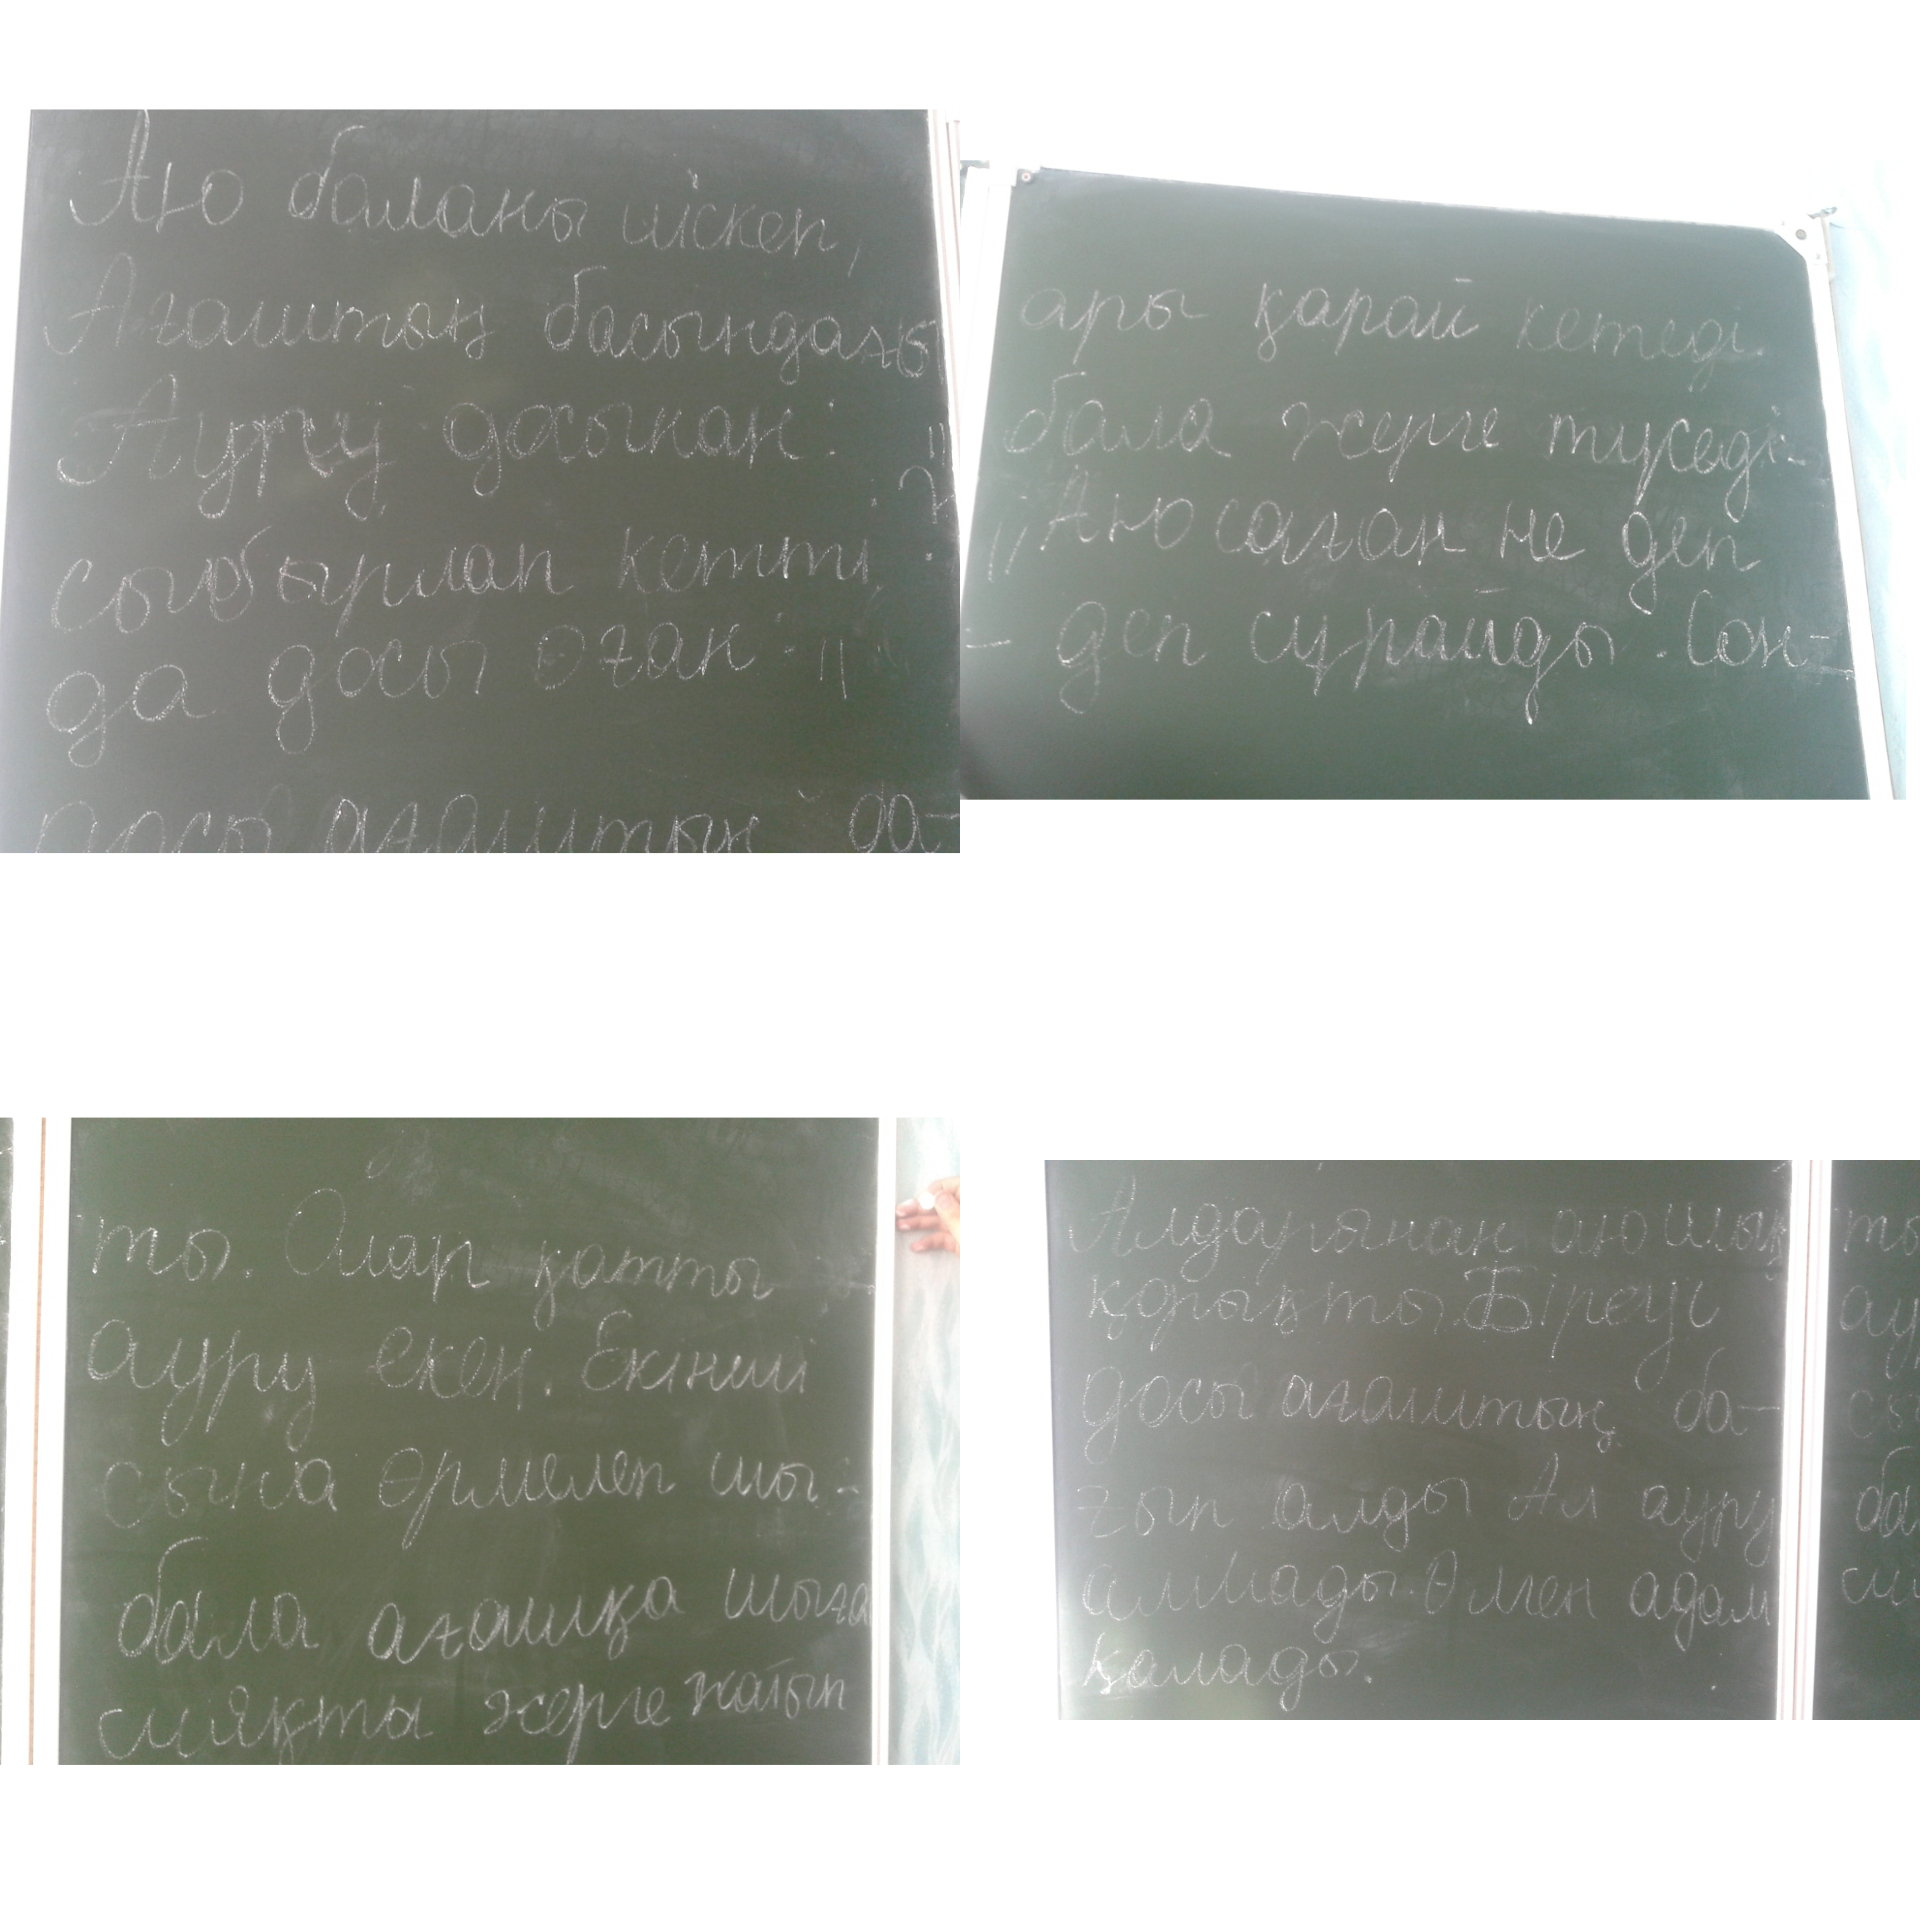 Аю баланы иіскеп,
Ағаштың басындағы
Ауру досынан: "
сыбырлап кетті ?
да досы оған: "
досы ағаштың ба-
ары қарай кетеді
бала жерге түседі-
"Аю саған не деп
- деп сұрайды. Сон-
ты. Олар қатты
ауру екен. Екінші
сына өрмелеп шы-
бала ағашқа шыға
сияқты жерге жатып
Алдарынан аю шық
қорықты. Біреуі
досы ағаштың ба-
ғып алды Ал ауру
алмады. Өлген адам
қалады.
ты
ау
сы
ба
си